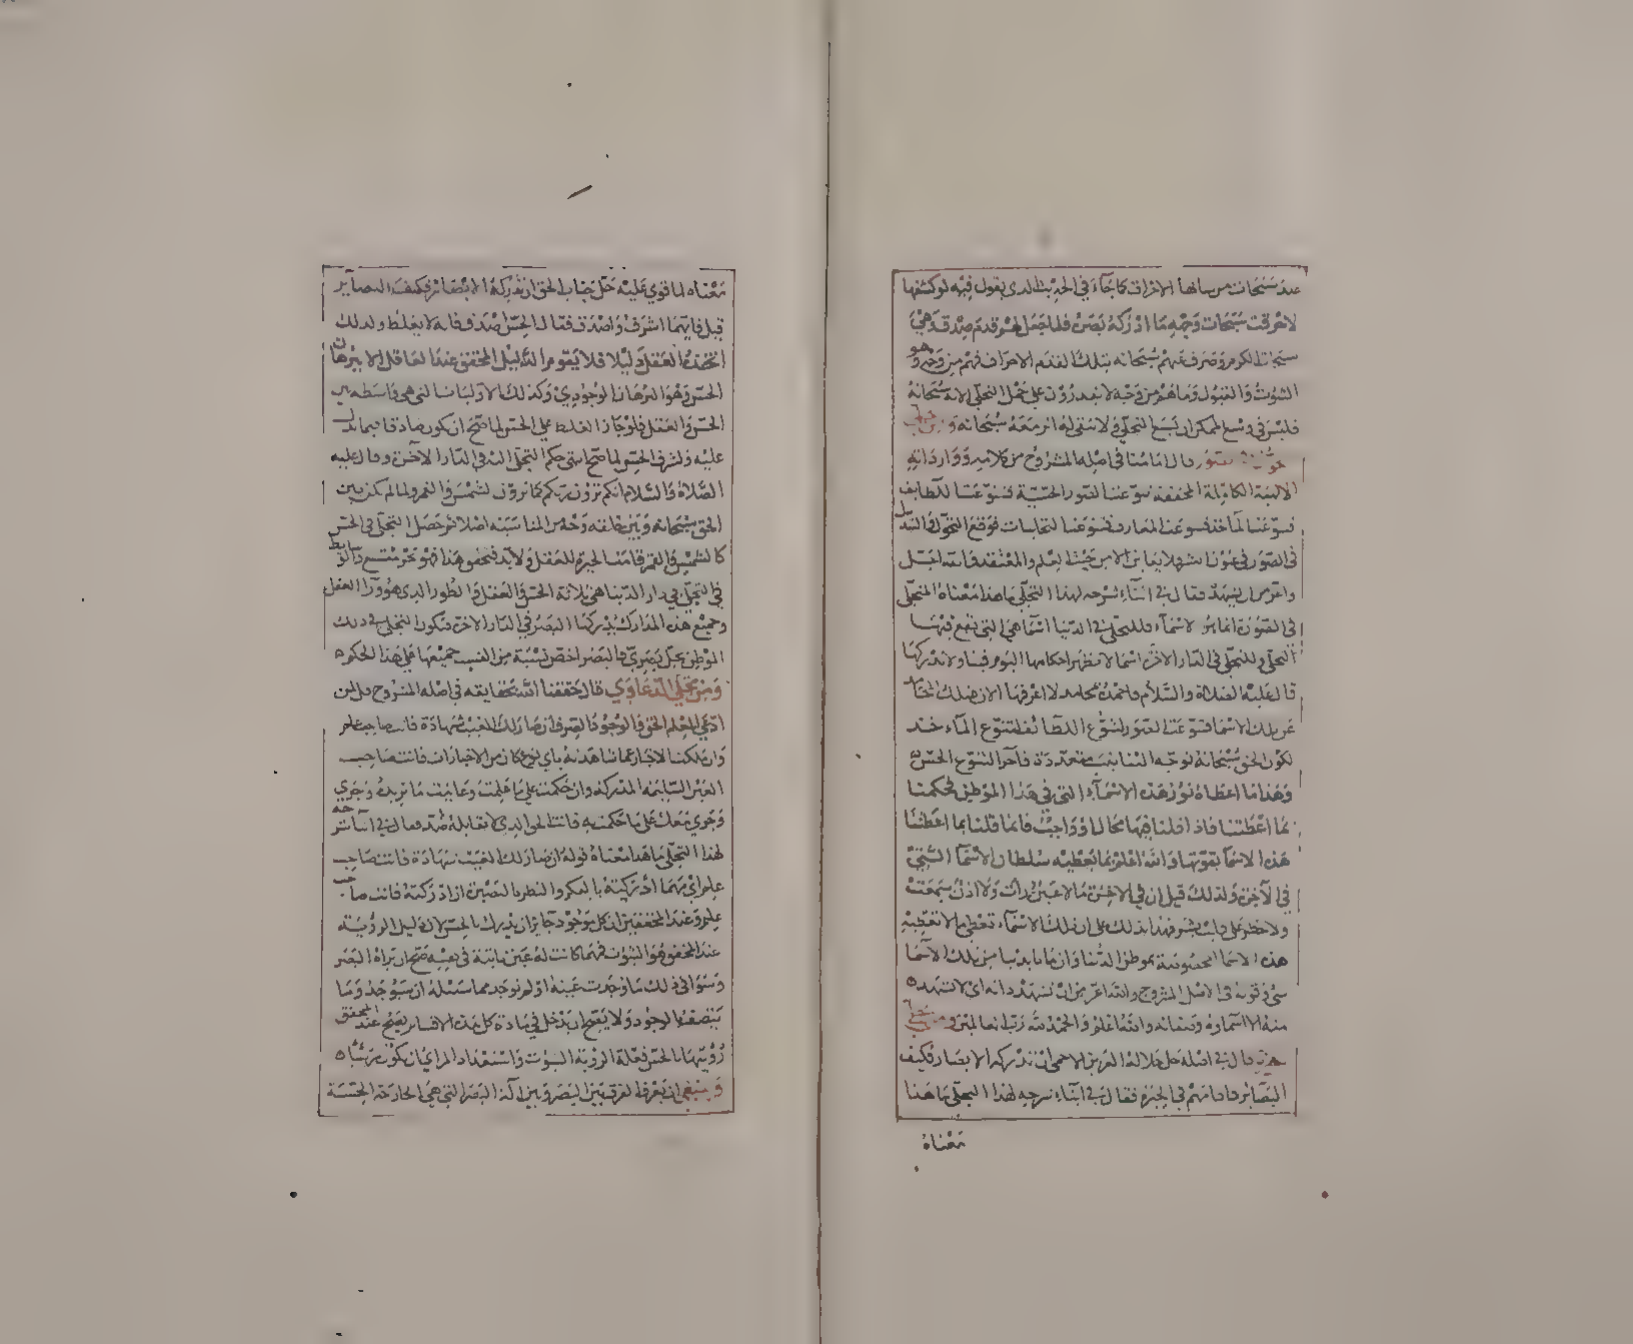 عند سبحات من شانها الاحراق كما جاء في الحديث الذي يقول فيه لو كشفها
لاحرقت سبحات وجهه ما ادركه بصره فلما جعل لهم قدم صدق وهي
سبحات الكرم وصرف عنهم سبحانه بتلك القدم الاحراق فهم من وجه وهو
الثبوت والقبول وما هم من وجه لا يقدرون على حمل التجلي لانه سبحانه
فليس في وسع الممكن ان يسع التجلي ولا تبقى له اثر معه سبحانه ومن تجلي
قال امامنا في اصله المشروح من كلامه وواردانه
الالهية الكاملة المحققة تنوعت الصور الحسية فتنوعت اللطايف
فتنوعت المآخذ فتنوعت المعارف فتنوعت التجليات فوقع التحول والتبدل
في الصور في عيون البشر ولا يعاين الا من حيث العلم والمعتقد والله اجل
واعز من ان يشهد فقال في اثناء شرحه لهذا التجلي ما هذا معناه المتجلي
في الصورة انما هو الاسماء فللتجلي في الدنيا اسماء هي التي يقع فيها
التجلي وللتجلي في الدار الاخرة اسما لا تظهر احكامها اليوم فينا ولا ندركها
قال عليه الصلاة والسلام فاحمده بمحامد لا اعرفها الان فتلك المحامد
عن تلك الاسما فتنوعت الصور لتنوع اللطائف لتنوع المآخذ
لكون الحق سبحانه توجه الينا بنسب متعددة فآخر التنوع الحس
وهذا ما اعطاه نور هذه الاسماء التي في هذا الموطن فحكمنا
بما اعطتنا فاذا قلنا فيها محال او واجب فانما قلنا بما اعطتنا
هذه الاسما بقوتها والله اعلم بما يعطيه سلطان الاسما التي
في الآخرة ولذلك قيل ان في الاخرة ما لا عين رأت ولا اذن سمعت
ولا خطر على قلب بشر فهذا يدلك على ان تلك الاسماء تعطي ما لا تعطيه
هذه الاسما المخصوصة بموطن الدنيا وان ما بايدينا من تلك الاسما
شي وقوله في الاصل المشروح والله اعز من ان تشهد ذاته اي لا تشهد
منه الا اسماؤه وصفاته والله اعلم والحمد لله رب العالمين ومن تجلي
قال في اصله جل جلاله العزيز الاحمى ان تدركه الابصار فكيف
البصائر فاقامهم في الحيرة فقال في اثناء شرحه لهذا التجلي ما هذا
معناه
معناه لما قوي عليه جل جناب الحق ان تدركه الابصار فكيف البصائر
قيل فايهما اشرف واصدق فقال الحس اصدق فانه لا يغلط ولذلك
اتخذه العقل دليلا فلا يقوم الدليل المحقق عند العاقل الا ببرهان
الحس وهو البرهان الوجودي وكذلك الاوليات التي هي واسطة بين
الحس والعقل فلو جاز الغلط على الحس لما صح ان يكون صادقا فيما دل
عليه ولشرف الحس لما صح انتهى حكم التجلي اليه في الدار الآخرة وقال عليه
الصلاة والسلام انكم ترون ربكم كما ترون الشمس والقمر ولما لم تكن بين
الحق سبحانه وبين خلقه وجه من المناسبة اصلا ثم حصل التجلي في الحس
كالشمس والقمر قامت الحيرة للعقل ولا بد فتحقق هذا فهو بحر متسع والوسايط
في التجلي في دار الدنيا هي ثلاثة الحس والعقل والطور الذي هو وراء العقل
وجميع هذه المدارك يدركها البصر في الدار الاخرة فيكون التجلي في ذلك
الموطن بحكم بصري والبصر اخص نسبة من النسب جميعها على هذا الحكم
ومن تجلي الدعاوي قال حققنا الله بحقايقه في اصله المشروح قل لمن
ادعى العلم الحق والوجود الصرف ان صار لك الغيب شهادة فانت صاحب علم
وان ملكت الاخبار عما شاهدته باي نوع كان من الاخبارات فانت صاحب
العين السليمة المدركة وان حكمت على ما علمت وعاينت ما تريده وجري
وجرى معك على ما حكمت به فانت الحق الذي لا يقابله ضد فقال في اثناء شرحه
لهذا التجلي ما هذا معناه قوله ان صار لك الغيب شهادة فانت صاحب
علم اي مهما ادركته بالفكر والنظر بالتعين اذا ادركته فانت صاحب
علم وعند المحققين ان كل موجود جايز ان يدرك بالحس لان دليل الرؤية
عند المحقق هو الثبوت فمهما كانت له عين ثابتة في نفسه صح ان يراه البصر
وسوا في ذلك ما وجدت عينه او لم توجد مما سبيله ان سيوجد وما
يتصف بالوجود ولا يصح ان يدخل في مادة كل هذه الاقسام يصح عند المحقق
رؤيتها بالحس فعلة الرؤية الثبوت واستعداد المرائي ان يكون مرئيا
وينبغي ان يعرف الفرق بين البصر وبين آلة البصر التي هي الجارحة الحسية